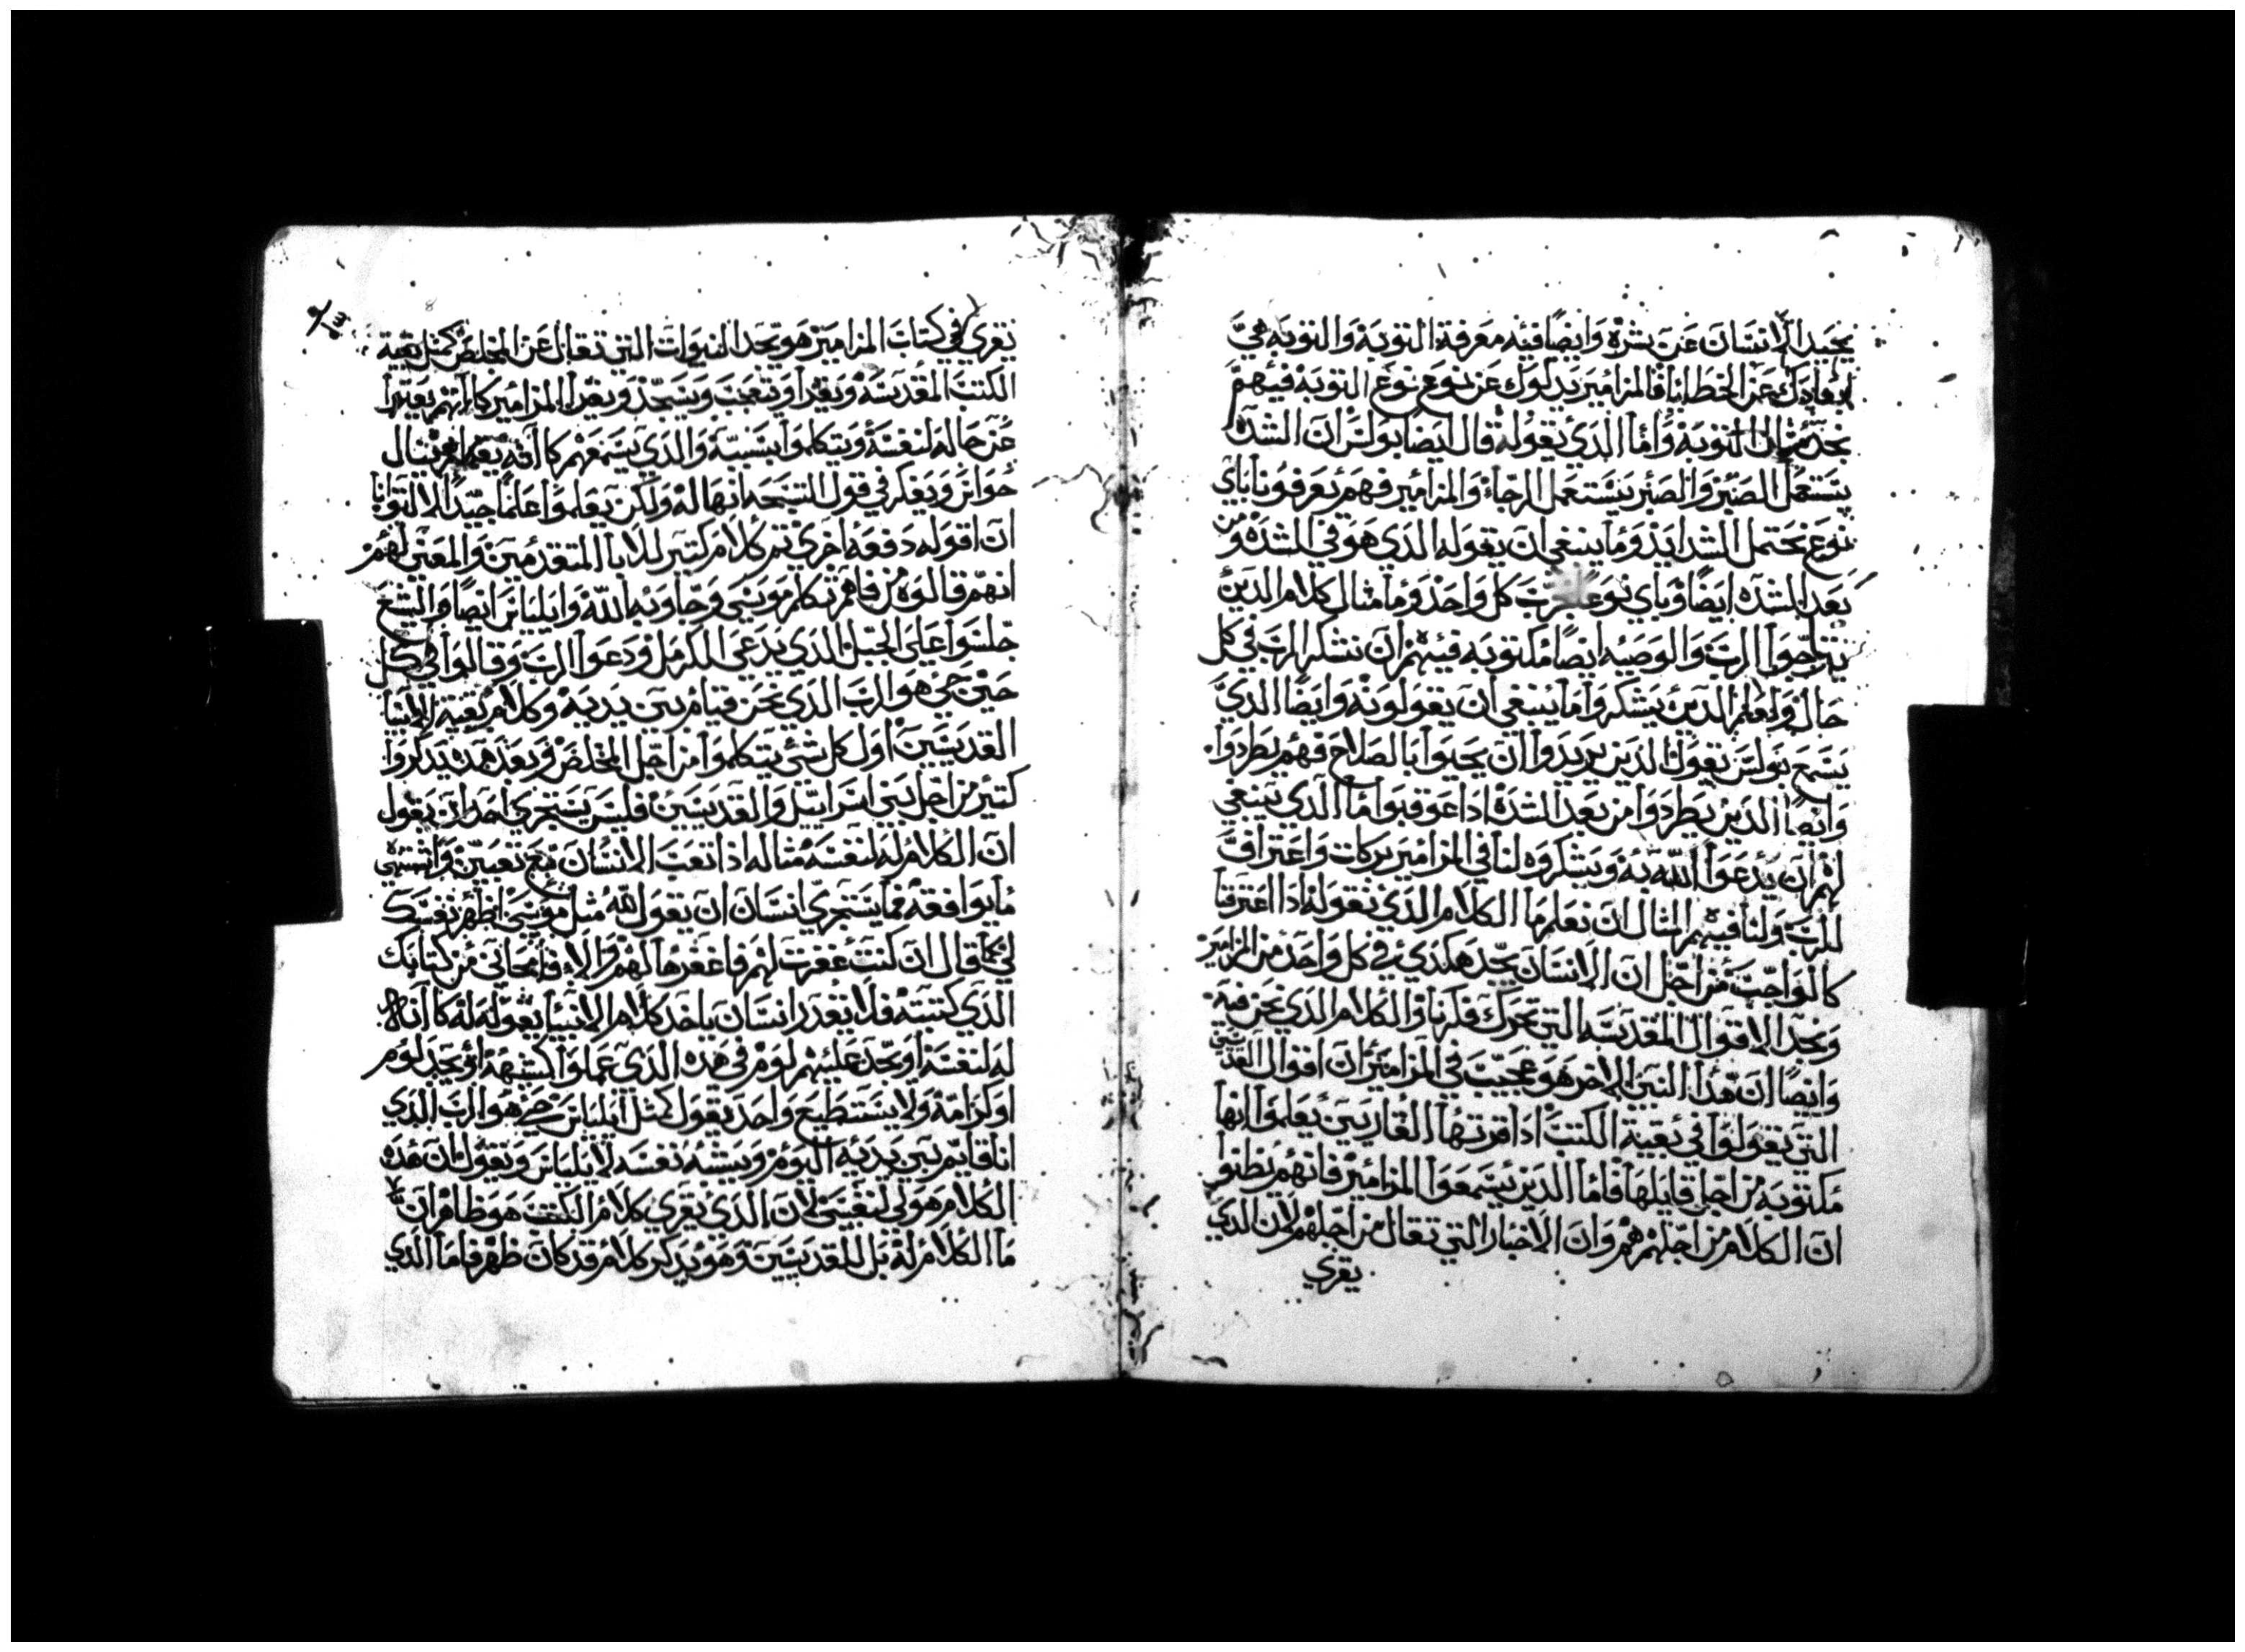 يحيد الانسان عن شره وايضا فيه معرفة التوبة والتوبه هي
ابعادك عن الخطايا فالمزامير يدلوك عن نوع نوع التوبة فيهم
نجد مثال التوبة واما الدي يقوله قال ايضا بولس ان الشده
يستعمل الصبر والصبر يستعمل الرجاء والمزامير فهم يعرفونا باي
نوع نحتمل الشدايد وما ينبغي ان يقوله الدي هو في الشده ومن
بعد الشده ايضا وباي نوع كل واحد وما مثال كلام الدين
الرب والوصيه ايضا مكتوبه فيهم ان نشكر الرب في كل
حال الدين يشكر واما ينبغي ان يقولونه وايضا الدي
يسمع بولس يقول الدين يريدوا ان يحيوا بالصلاح فهم يطردوا
وايضا الدين يطردوا من بعد الشدة ادا عوقبوا ما الدي ينبغي
لهم ان يدعوا الله به ويشكروه لنا في المزامير بركات واعتراف
للرب ولنا فيهم المثال ان نعلم ما الكلام الدي نقوله ادا اعترفنا
كالواجب من اجل ان الانسان يجد هكدي في كل واحد من المزامير
ونجد الاقوال المقدسه التي تحرك فكرنا والكلام الدي نحن فيه
وايضا ان هدا النبي الاخر هو عجيب في المزامير ان اقوال القديسين
التي يقولوا في بقية الكتب ادا قرتها القاريين يعلموا انها
مكتوبه من اجل قايلها فاما الدين يسمعوا المزامير فانهم يظنوا
ان الكلام من اجلهم هم وان الاخبار التي تقال من اجلهم لان الدي
يقري
يقري في كتاب المزامير هو يجد النبوات التي تقال عن المخلص كمثل بقية
الكتب المقدسه ويقرا ويتعجب ويسجد ويقرا المزامير كا انهم يعتبرا
عن حاله لنفسه ويتكلموا بسببه والدي يسمعهم كا انه
ويفكر في قول التسبحه انها له ولكن يعلموا علما جيدا لا التوانا
ان اقوله دفعه اخري تم كلام كتير للابا المتقدمين والمعني لهم
انهم قالوه من فاهم تكلم موسي وجاوبه الله وايلياس ايضا واليشع
جلسوا علي الجبل الدي يدعي الكرمل ودعوا الرب وقالوا في كل
حين حي هو الرب الدي نحن قيام بين يديه وكلام بقيه الانبيا
القديسين اول كل شي يتكلموا من اجل المخلص وبعد هده يدكروا
كتير من اجل بني اسراييل والقديسين فليس يستجري احدا ان يقول
ان الكلام له لنفسه مثاله اذا تعب الانسان مع تعبين
ما يوافقه فما يستجري انسان ان يقول لله مثل موسي اظهر نفسك
لي كما قال ان كنت غفرت لهم فاغفرها لهم والا فامحاني من كتابك
الدي كتبته فلا يقدر انسان ياخد كلام الانبيا يقوله له كا
له لنفسه او يجد عليهم لوم في هده الدي عملوا كشبهه او يجد لوم
او كرامة ولا يستطيع واحد يقول كمثل ايلياس حي هو الرب الدي
انا قايم بين يديه اليوم ويشبه نفسه لايلياس ويقول ان هده
الكلام هو لي لنفسي لان الدي يقري كلام الكتب هو ظاهر ان
ما الكلام له بل للقديسين وهو يدكر كلام قد كان ظهر فاما الدي